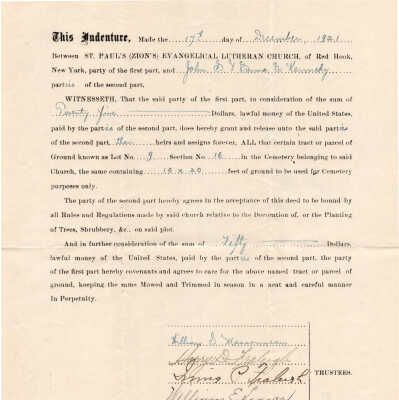 This Indenture, Made the 17th day of December, 1921
Between ST. PAUL'S (ZION'S) EVANGELICAL LUTHERAN CHURCH, of Red Hook,
New York, party of the first part, and John S. & Emma E. Kennedy
parties of the second part.
WITNESSETH, That the said party of the first part, in consideration of the sum of
Twenty five Dollars, lawful money of the United States,
paid by the parties of the second part, does hereby grant and release unto the said parties
of the second part, their heirs and assigns forever, ALL that certain tract or parcel of
Ground known as Lot No. 9 Section No. 16 in the Cemetery belonging to said
Church, the same containing 10 x 20 feet of ground to be used for Cemetery
purposes only.
The party of the second part hereby agrees in the acceptance of this deed to be bound by
all Rules and Regulations made by said church relative to the Decoration of, or the Planting
of Trees, Shrubbery, &c. on said plot.
And in further consideration of the sum of Fifty Dollars,
lawful money of the United States, paid by the parties of the second part, the party
of the first part hereby covenants and agrees to care for the above named tract or parcel of
ground, keeping the same Mowed and Trimmed in season in a neat and careful manner
In Perpetuity.
William S.
Harry D.
Irving C.
William
TRUSTEES.